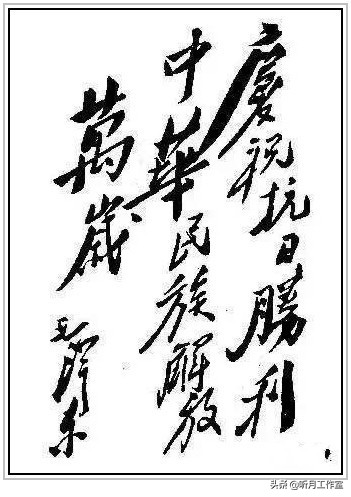 慶祝抗日勝利
中華民族解放
萬歲
毛澤东
头条 @听月工作室